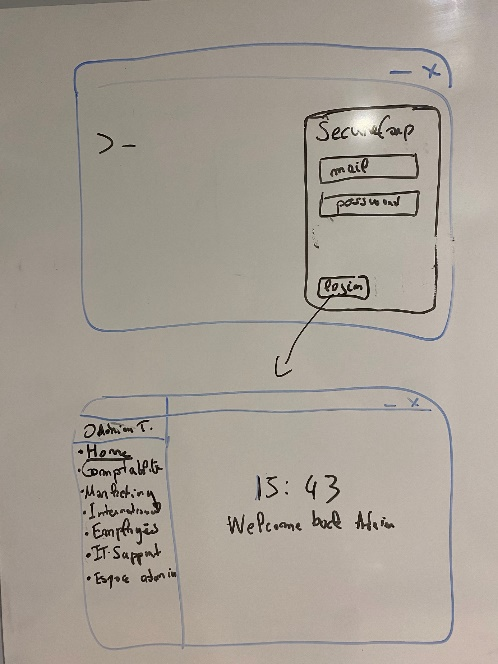 — x
>_
SecureCorp
mail
password
login
— x
Damian T.
• Home
• Comptabilité
• Marketing
• International
• Employés
• IT Support
• Espace admin
15:43
Welcome back Admin